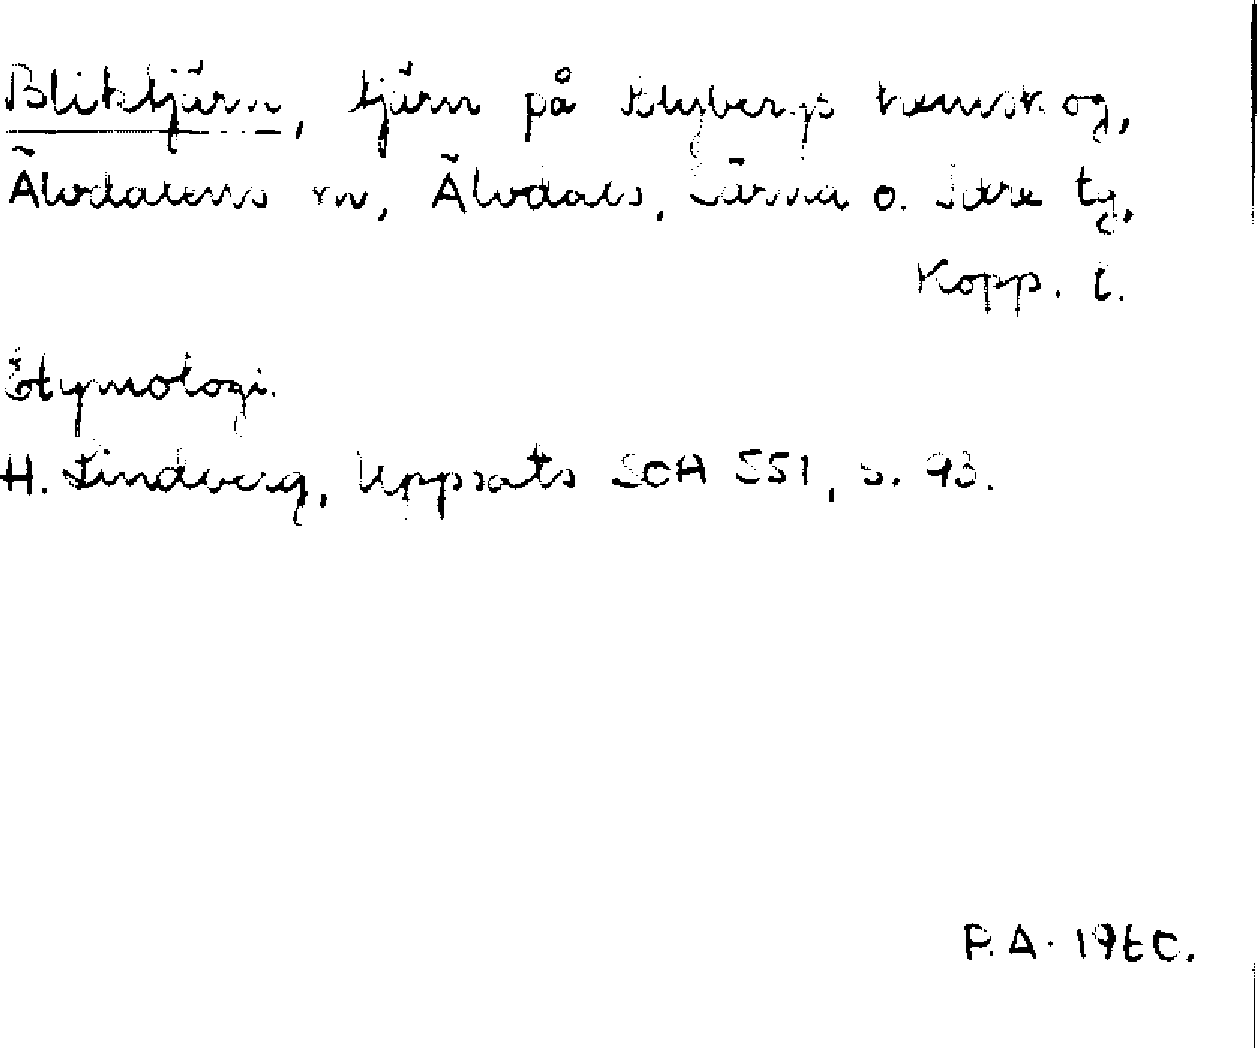 Bliktjärn, tjärn på Klybergs hemskog,
Älvdalens sn, Älvdals, Särna o. Idre tg,
Kopp. l.
Etymologi.
H. Lindberg, Uppsats SOA 551, s. 93.
P.A. 1960.